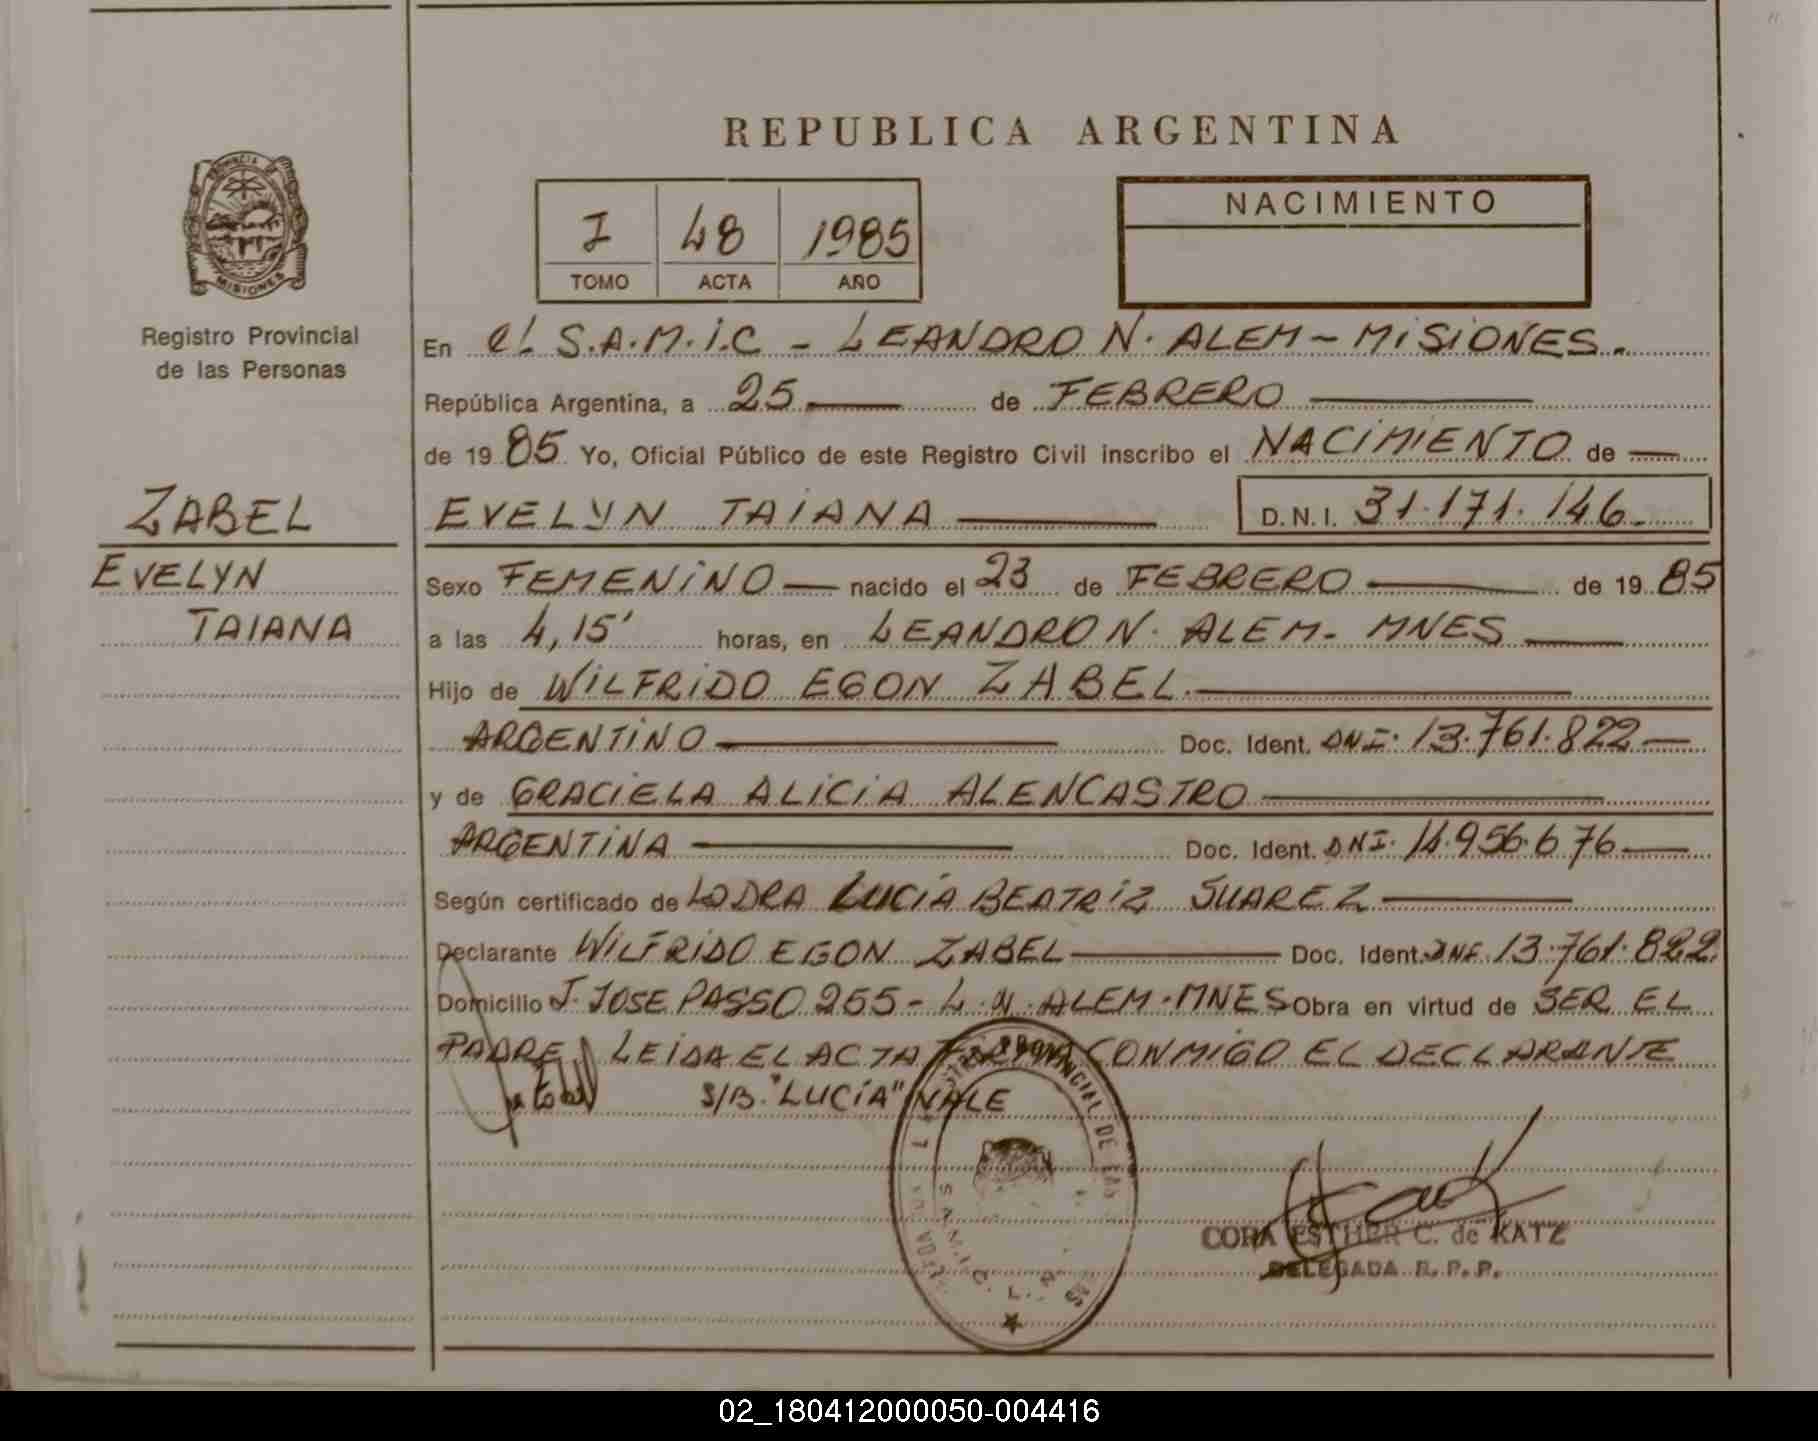 REPUBLICA ARGENTINA
PROVINCIA DE
MISIONES
Registro Provincial
de las Personas
I 48 1985
TOMO ACTA AÑO
NACIMIENTO
ZABEL
EVELYN
TAIANA
En el S.A.M.I.C - LEANDRO N. ALEM - MISIONES.
República Argentina, a 25 de FEBRERO
de 1985 Yo, Oficial Público de este Registro Civil inscribo el NACIMIENTO de
EVELYN TAIANA D.N.I. 31.171.146.
Sexo FEMENINO nacido el 23 de FEBRERO de 1985
a las 4,15' horas, en LEANDRO N. ALEM. MNES
Hijo de WILFRIDO EGON ZABEL.
ARGENTINO Doc. Ident. DNI. 13.761.822
y de GRACIELA ALICIA ALENCASTRO
ARGENTINA Doc. Ident. DNI. 14.956.676
Según certificado de LA DRA LUCÍA BEATRIZ SUAREZ
Declarante WILFRIDO EGON ZABEL Doc. Ident. DNI. 13.761.822
Domicilio J. JOSE PASSO 255 - L.N. ALEM. MNES Obra en virtud de SER EL
PADRE LEIDA EL ACTA FIRMA CONMIGO EL DECLARANTE
S/B. "LUCÍA" VALE
PROVINCIAL DE LAS
S.A.M.I.C. L.
CORA ESTHER C. de KATZ
DELEGADA R.P.P.
02_180412000050-004416